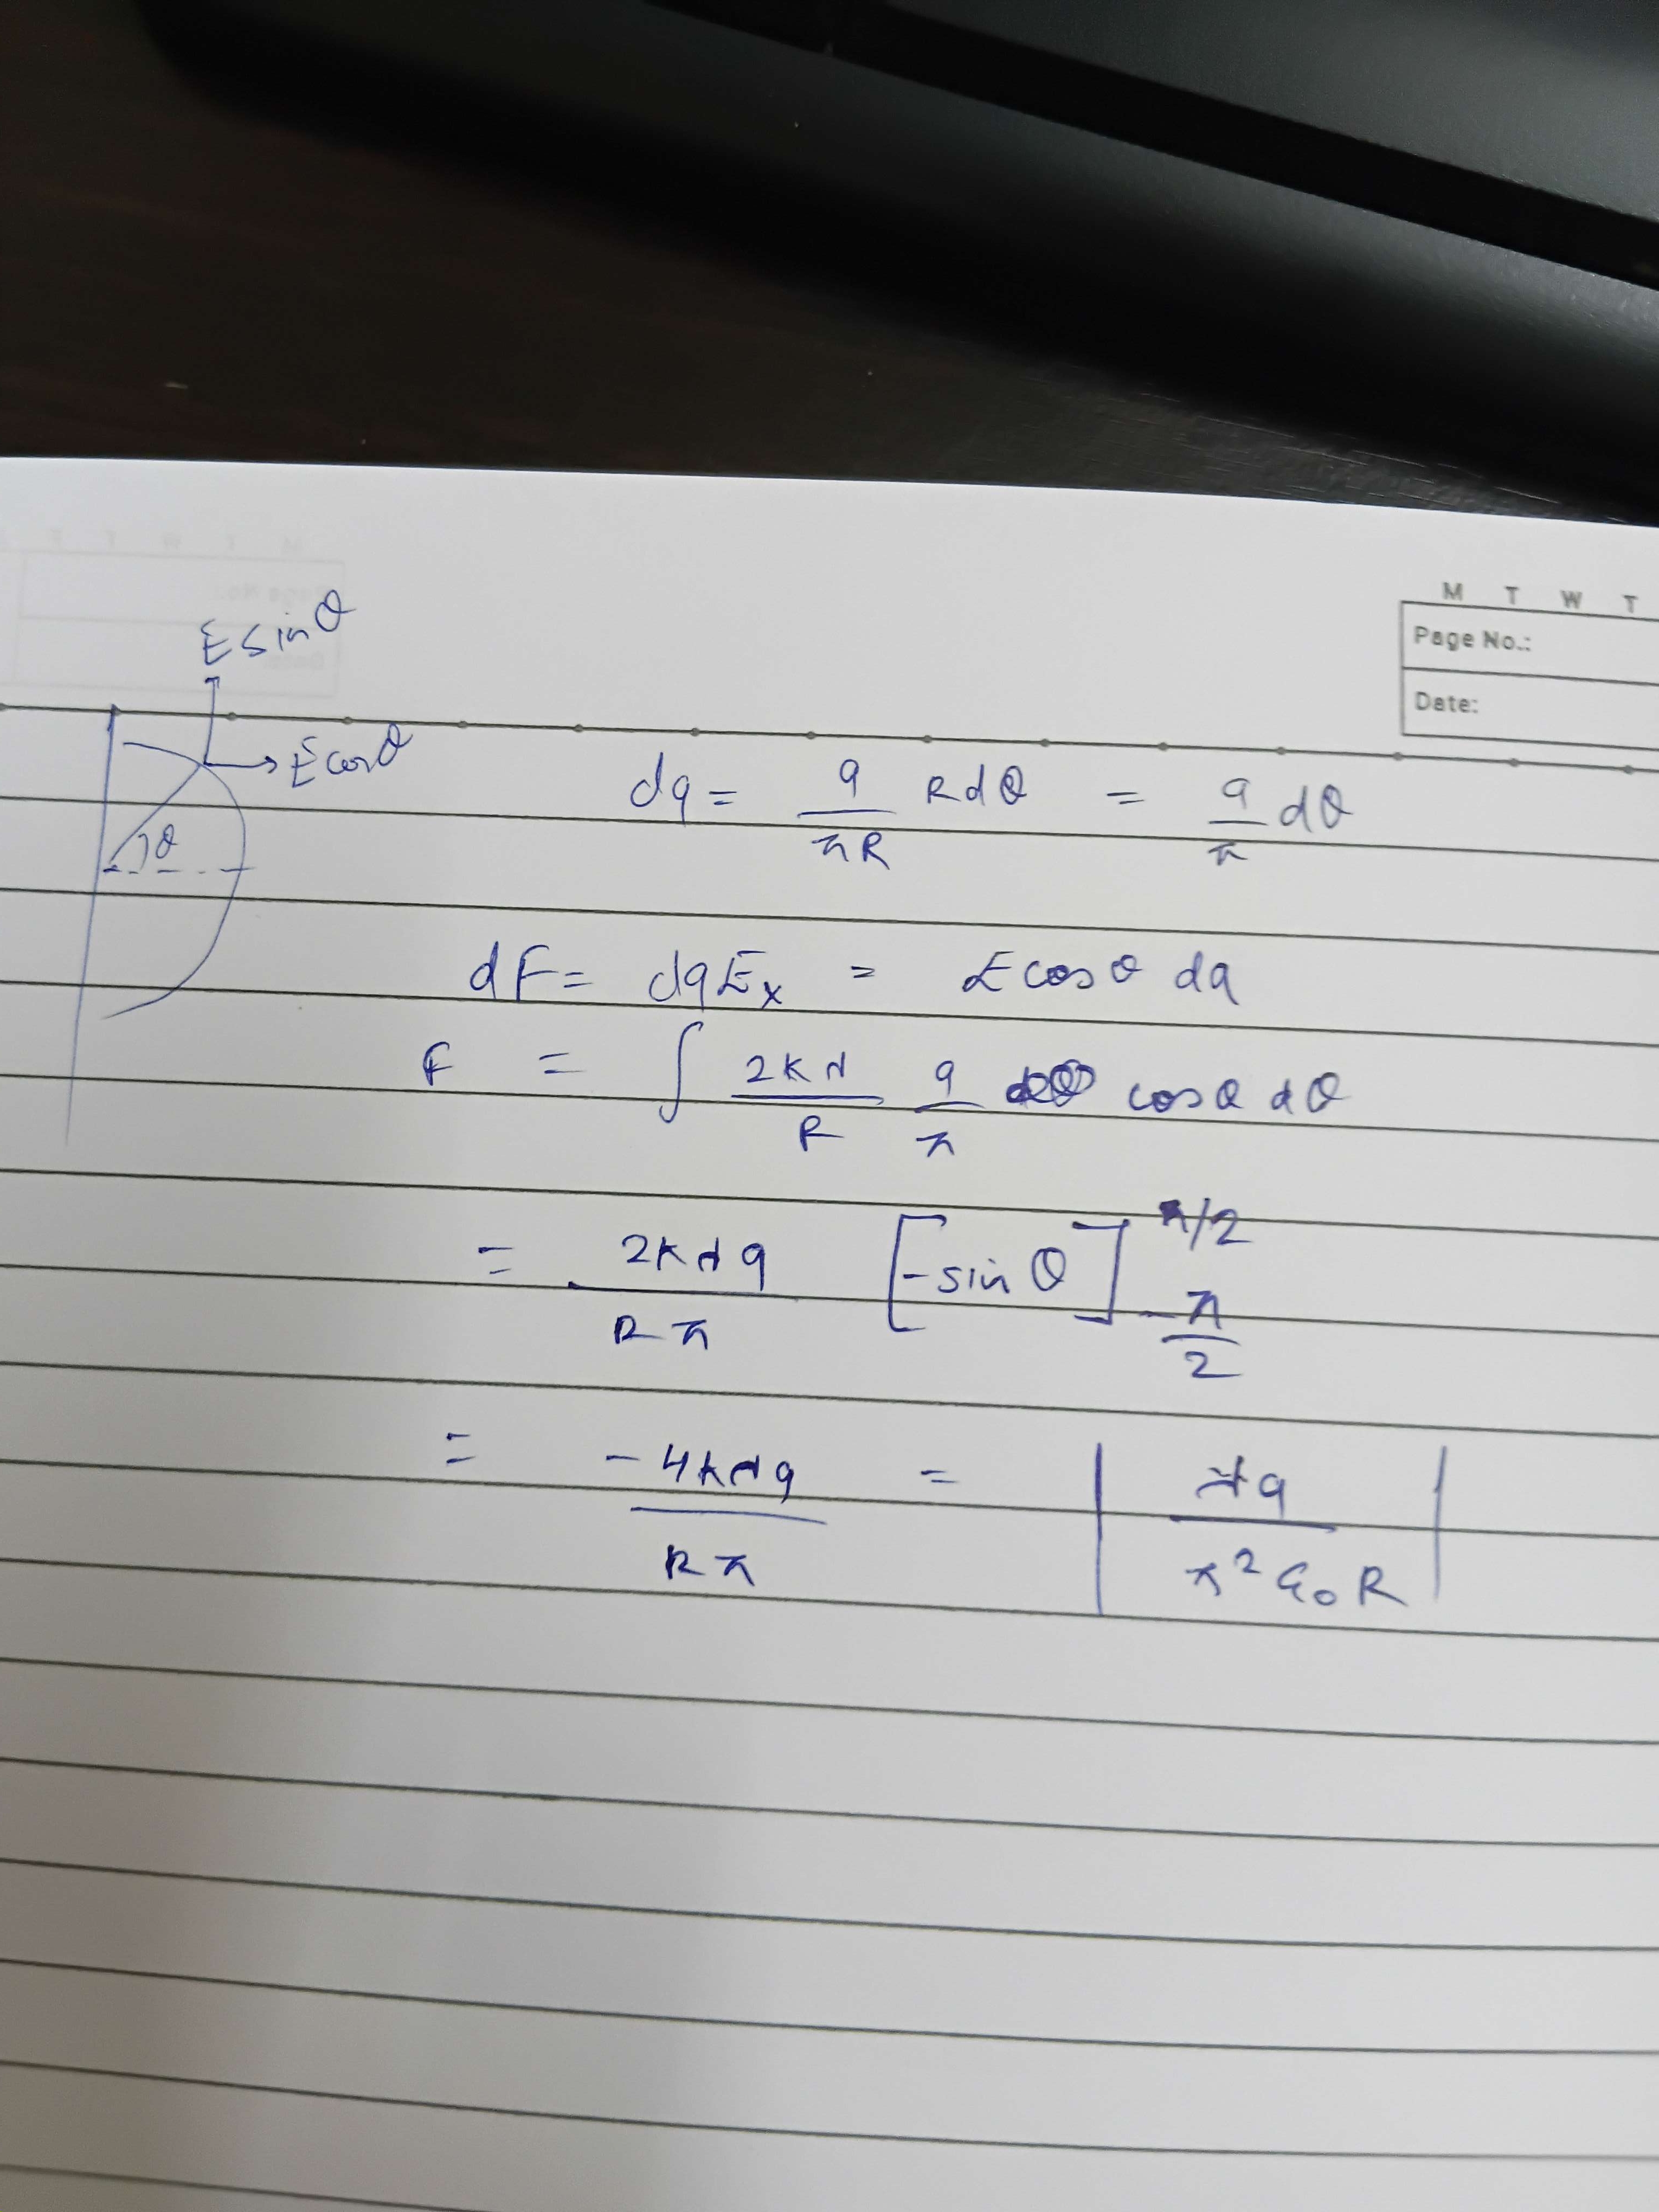 M T W T
Page No.:
Date:
E sin θ
E cos θ
θ
dq = q/πR R dθ = q/π dθ
dF = dq Ex = E cos θ dq
F = ∫ 2kλ/R q/π cos θ dθ
= 2kλq/Rπ [-sin θ] π/2 -π/2
= -4kλq/Rπ = | λq/π²ε₀R |